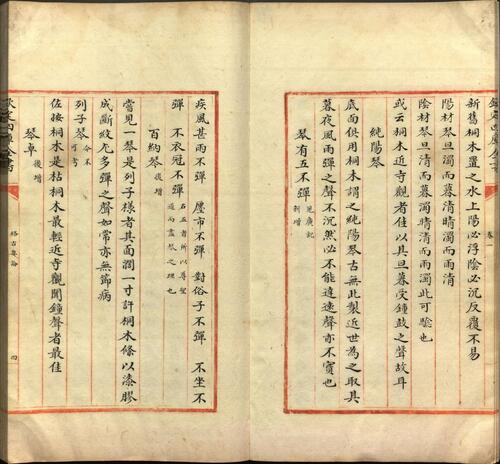 新舊桐木置之水上陽必浮陰必沉反覆不易
陽材琴旦濁而暮清晴濁而雨清
陰材琴旦清而暮濁晴清而雨濁此可驗也
或云桐木近寺觀者佳以其旦暮受鐘鼓之聲故耳
純陽琴
底面俱用桐木謂之純陽琴古無此製近世為之取其
暮夜風雨彈之聲不沉然必不能達遠聲亦不實也
琴有五不彈 見廣記新增
疾風甚雨不彈 廛市不彈 對俗子不彈 不坐不
彈 不衣冠不彈 右五者所以尊聖道而盡琴之理也
百納琴 後增
嘗見一琴是列子樣者其面濶一寸許桐木條以漆膠
成斷紋尤多彈之聲如常亦無節病
列子琴 今不可考
琴卓 後增
佐按桐木是枯桐木最輕近寺觀聞鐘聲者最佳
卷一
格古要論
四